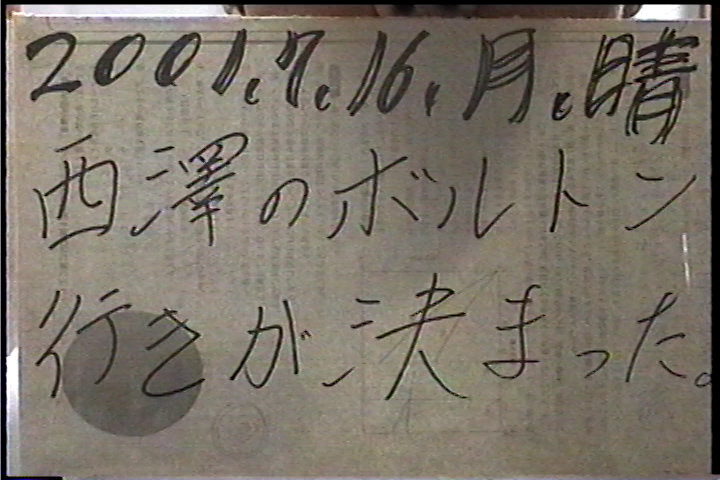 2001.7.16.月.晴
西澤のボルトン
行きが決まった。